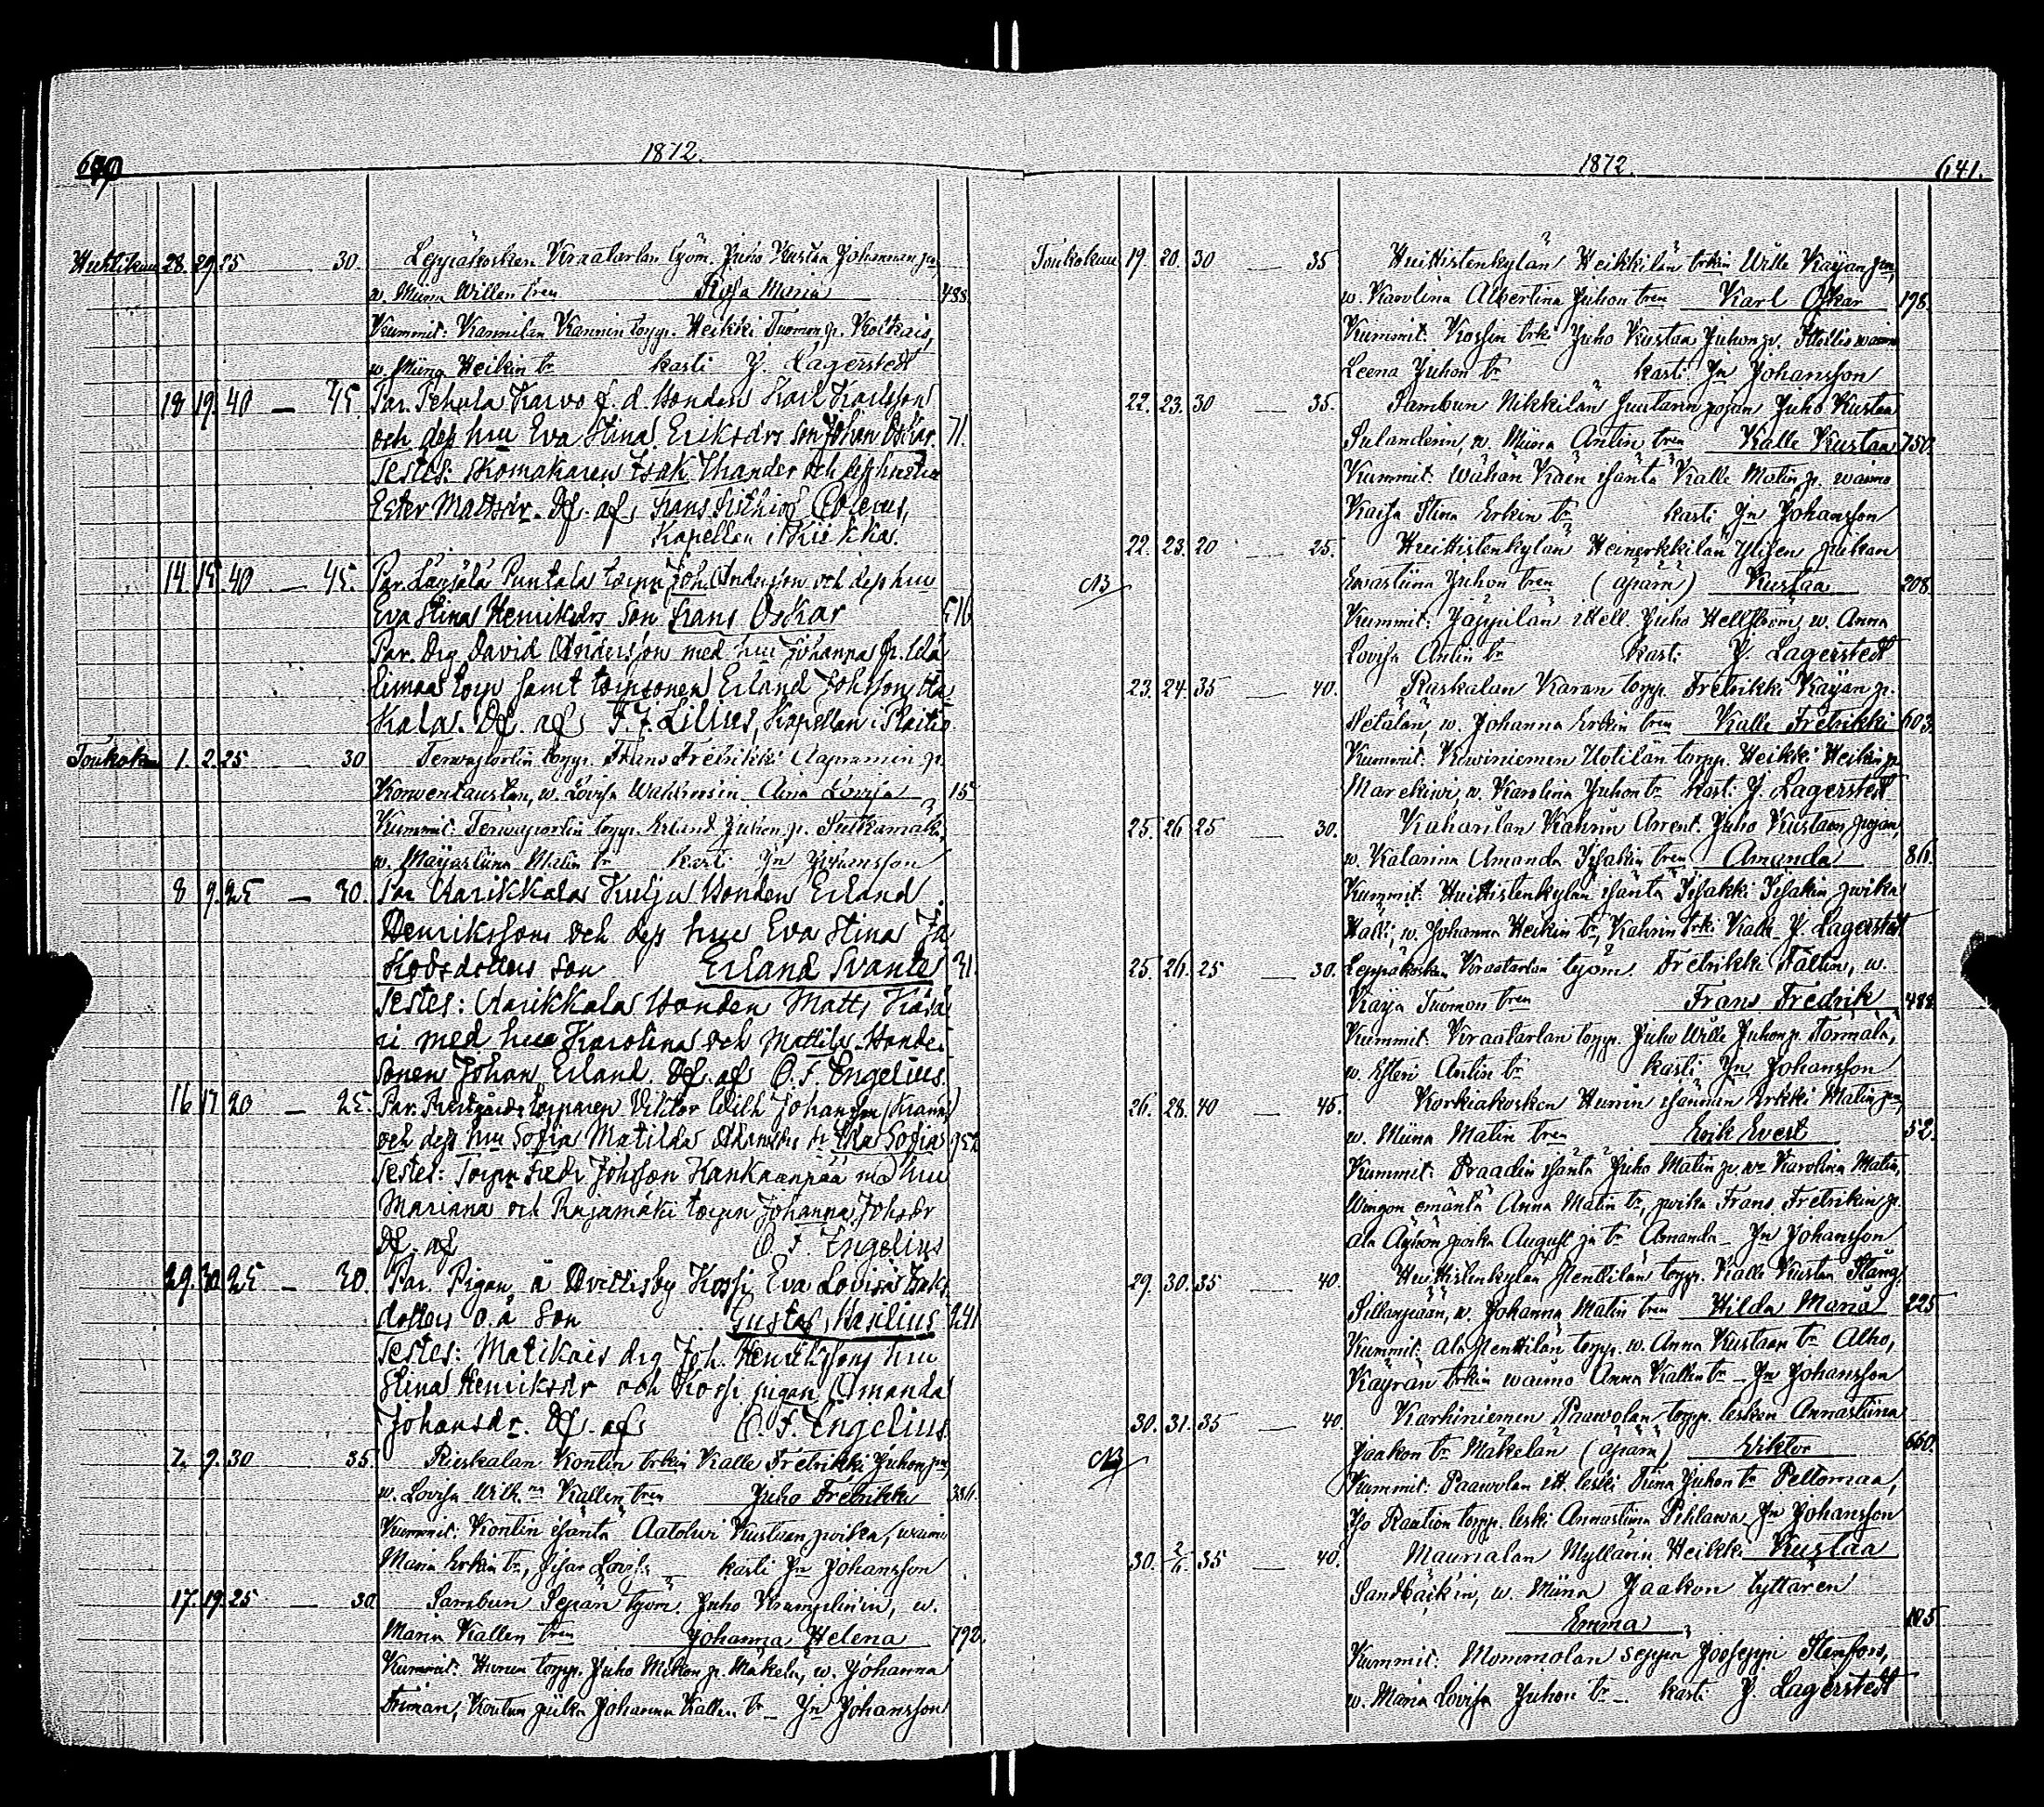 640
1872.
Huhtikuu 28. 29. 25 — 30. Leppäkosken Kraatarlan työm. Juho Kustaa Johannan pn
w. Miina Willen tren Rosa Maria 488.
Kummit: Kannilan Kannin torpp. Heikki Tuomon p. Koikais,
w. Miina Heikin tr kasti J. Lagerstedt
18 19. 40 — 45. Par. Karvo f. d. bonden Karl Karlsson
och dess hru Eva Stina Eriksdrs son Johan Oskar. 71.
Testes: Skomakaren Isak Thander och dess hustru
Ester Mattsdr. Df. af Frans Frithiof Polenus,
Kapellan i Kiikka.
14. 15. 40 — 45. Par. Puntala torppn Joh. Andersson och dess hru
Eva Stina Henriksdrs son Frans Oskar 516
Par. Drg David Andersson med hru Johanna
torp samt torpsonen Erland Johsson
Df. af F. J. Lilius, Kapellan i
Toukokuu 1. 2. 25 30 torpp. Frans Fredrikki Aapramin p.
w. Lovisa Aina Lovisa 15
Kummit: torpp. Erland Juhon p.
w. Majastiina Matin tr kasti Jn Johansson
8 9. 25 — 30. Par Karikkala Kulju bonden Erland
Henrikssons och dess hru Eva Stina Ja
kobsdotters son Erland Svante 31.
Testes: Karikkala bonden Matts
ri med hru Karolina och Mattila bonde-
sonen Johan Erland. Df. af O. F. Engelius.
16 17 20 — 25. Par. torpparen Viktor Wilh Johansson
och dess hru Sofia Matilda dr Ida Sofia 952
Testes: Torpn Fredr Johsson Kankaanpää md hru
Marianna och Rajamäki torpn Johanna Johsdr
Df. af O. F. Engelius
29. 30. 25 — 30. Par. Pigan å Hvittisby Kossi Eva Lovisa Isaks
dotters o. ä son Gustaf 241
Testes: Matikais drg Joh. Henrikssons hru
Stina Henriksdr och Kossi pigan Amanda
Johansdr. Df. af O. F. Engelius.
7. 9. 30 35. Ruskalan Kontin trkin Kalle Fredrikki Juhon pn,
w. Lovisa Wilh.na Kallen tren Juho Fredrikki
Kummit: Kontin isäntä Aatolwi Kustaan poika, waimo
Maria Erkin tr, sisar Lovisa — kasti Jn Johansson
17. 19. 25 — 30. Sambun Sepän työm. Juho w.
Maria Kallen tren Johanna Helena 792.
Kummit: torpp. Juho Mikon p. Mäkelä, w. Johanna
piika Johanna Kallen tr — Jn Johansson
1872. 641.
Toukokuu 19. 20. 30 — 35 Huittistenkylän Heikkilän trkin Wille Kaijan pn,
w. Karolina Albertina Juhon tren Karl Oskar 198.
Kummit: Kossin trki Juho Kustaa Juhon p. waimo
Leena Juhon tr kasti Jn Johansson
22. 23. 30 — 35. Sambun Nikkilän Juutarin pojan Juho Kustaa
Sulanderin, w. Miina Antin tren Kalle Kustaa 750.
Kummit: Wähän isäntä Kalle Matin p. waimo
Kaisa Stina Erkin tr kasti Jn Johansson
22. 23. 20 — 25. Huittistenkylän Heinerkkilän piikan
NB Ewastiina Juhon tren (äpärä) Kustaa 208.
Kummit: itsell. Juho Hellström, w. Anna
Lovisa Antin tr kasti J. Lagerstedt
23. 24. 35 — 40. Ruskalan Karan torpp. Fredrikki Kaijan p.
w. Johanna Erkin tren Kalle Fredrikki 603.
Kummit: Kiwiniemen Uotilan torpp. Heikki Heikin p.
w. Karolina Juhon tr kasti J. Lagerstedt
25. 26. 25 — 30. Kaharilan Kaharin Arrent. Juho Kustaan pojan,
w. Katarina Amanda Isakin tren Amanda 86.
Kummit: Huittistenkylän isäntä Isakki Isakin poika
w. Johanna Heikin tr, Kaharin trki Kalle — J. Lagerstedt
25. 26. 25 — 30. Leppäkosken Kraatarlan työm. Fredrikki Fältin, w.
Kaija Tuomon tren Frans Fredrik 488.
Kummit: Kraatarlan torpp. Juho Wille Juhon p. Törmälä,
w. Esteri Antin tr kasti Jn Johansson
26. 28. 40 — 45. Korkiakosken Hurrin isännän Erkki Matin pn,
w. Miina Matin tren Erik Evert 52.
Kummit: Praadin isäntä Juho Matin p. w. Karolina Matin,
emäntä Anna Matin tr, poika Frans Fredrikin p.
Ala poika August ja tr Amanda — Jn Johansson
29. 30. 35 — 40. Huittistenkylän Penttilän torpp. Kalle Kustaa Stång,
Sillanpään, w. Johanna Matin tren Hilda Maria 225
Kummit: Ala Penttilän torpp. w. Anna Kustaan tr Alho,
Käyrän trkin waimo Anna Kallen tr — Jn Johansson
30. 31. 35 — 40. Karhiniemen Paawolan torpp. lesken Annastiina
NB Jaakon tr Mäkelän (äpärä) Viktor 660.
Kummit: Paawolan itsell. leski Tiina Juhon tr Peltomaa,
Iso Raution torpp. leski Annastiina Pihlawa Jn Johansson
30. 2/6. 35 — 40. Maurialan Myllärin Heikki Kustaa
Sandbäckin, w. Miina Jaakon tyttären
Emma 105
Kummit: Mommolan seppä Jooseppi Stenfors,
w. Maria Lovisa Juhon tr — kasti J. Lagerstedt